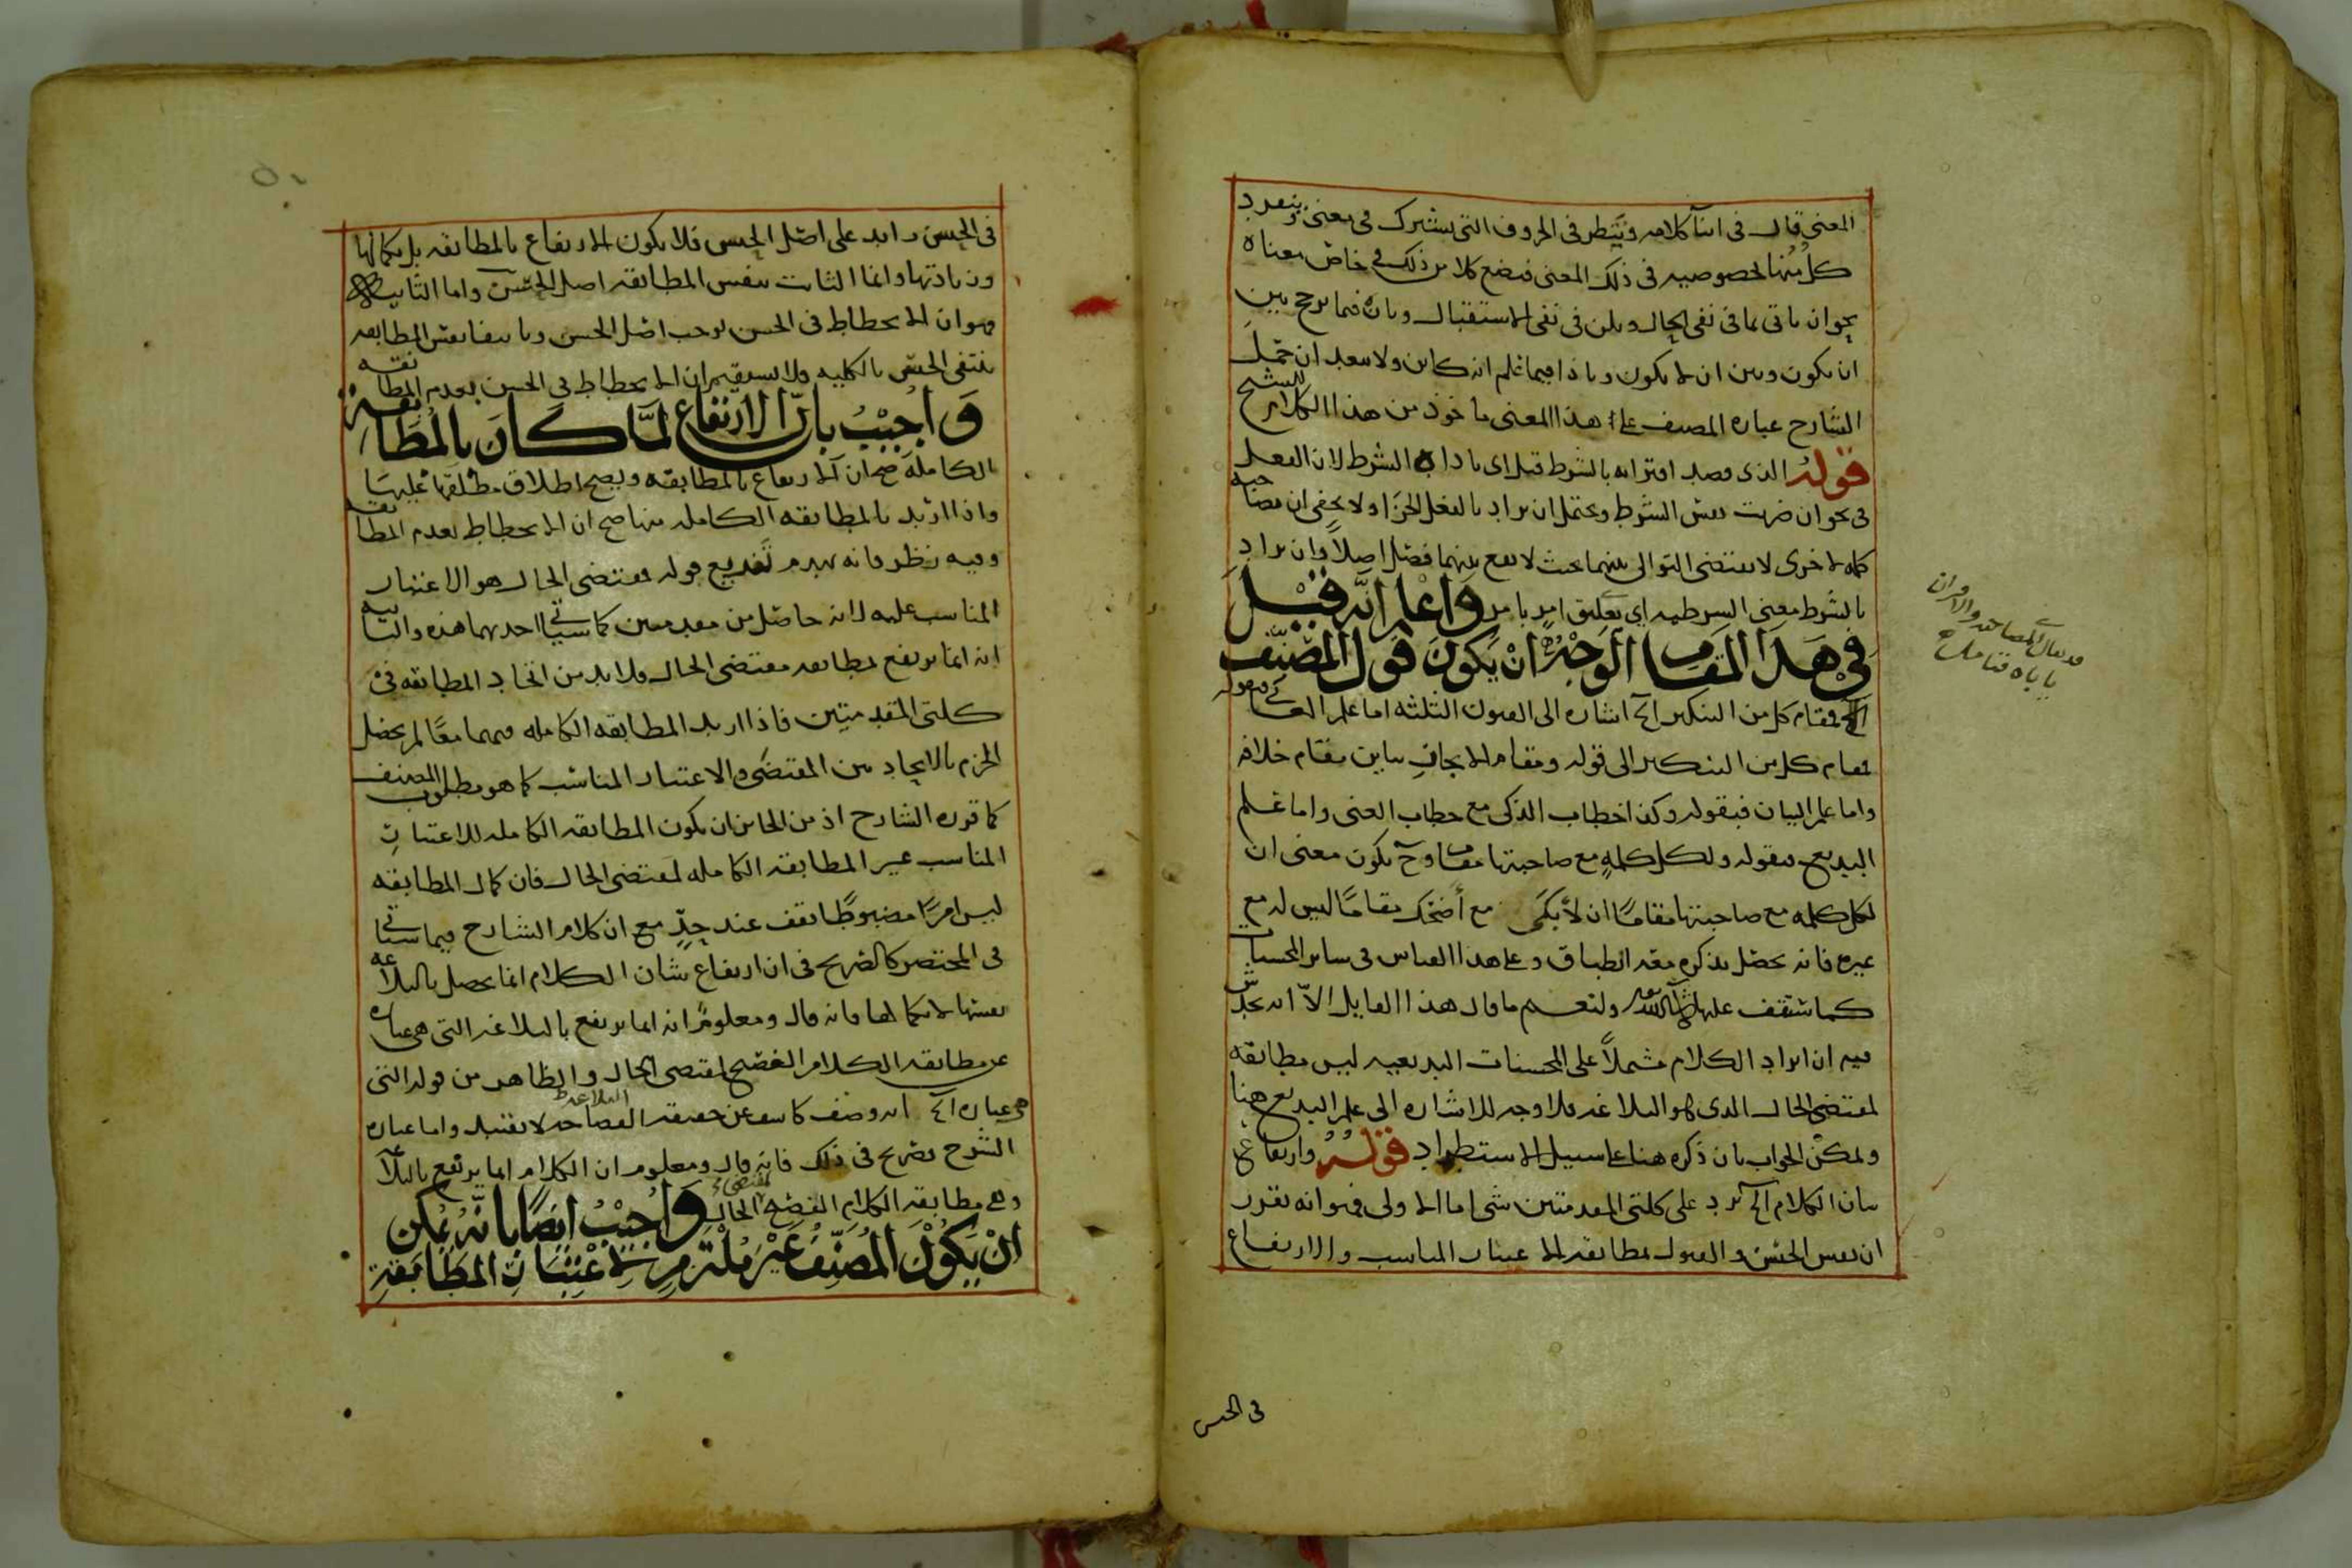 المعنى قال في اثنآ كلامه وينظر في الحروف التي تشترك في معنى وينفرد
كل منها بخصوصيه في ذلك المعنى فيضع كلا من ذلك في خاص معناه
نحو ان ياتي بما في نفي الحال وبلن في نفي الاستقبال وبان فيما يرجح بين
ان يكون وبين ان لا يكون وباذا فيما علم انه كاين ولا يبعد ان حمل
الشارح عباره المصنف على هذا المعنى ماخوذ من هذا الكلام للشيخ
قوله الذي قصد اقترانه بالشرط قيل اي باداه الشرط لان الفعل
في نحو ان ضربت نفس الشرط ويحتمل ان يراد بالفعل الجزا ولا يخفى ان مصاحبه
كلمه لاخرى لا يقتضي التوالي بينهما بحيث لا يقع بينهما فصل اصلا وان يراد
بالشرط معنى الشرطيه اي تعليق امر بامر واعلم انه قيل
في هذا المقام الوجه ان يكون قول المصنف
فمقام كل من التنكير الخ اشاره الى الفنون الثلثه اما علم المعاني فبقوله
مقام كل من التنكير الى قوله ومقام الايجاز يباين مقام خلافه
واما علم البيان فبقوله وكذا خطاب الذكي مع خطاب الغبي واما علم
البديع فبقوله ولكل كلمه مع صاحبتها مقام وح يكون معنى ان
لكل كلمه مع صاحبتها مقاما ان لابكى مع اضحك مقاما ليس له مع
غيره فانه يحصل بذكره معه الطباق وعلى هذا القياس في ساير المحسنات
كما ستقف عليها ان شا الله تعالى ولنعم ما قال هذا القايل الا انه يخدش
فيه ان ايراد الكلام مشتملا على المحسنات البديعيه ليس مطابقه
لمقتضى الحال الذي هو البلاغه فلا وجه للاشاره الى علم البديع هنا
ويمكن الجواب بان ذكره هنا على سبيل الاستطراد قوله وارتفاع
شان الكلام الخ يرد على كلتى المقدمتين شي اما الاولى فهو انه تقرر
ان نفس الحسن والقبول بمطابقه الاعتبار المناسب والارتفاع
في الحسن
في الحسن زايد على اصل الحسن فلا يكون الارتفاع بالمطابقه بل بكمالها
وزيادتها وانما الثابت بنفس المطابقه اصل الحسن واما الثانيه
فهو ان الانحطاط في الحسن يوجب اصل الحسن وبانتفا نفس المطابقه
ينتفي الحسن بالكليه ولا يستقيم ان الانحطاط في الحسن بعدم المطابقه
واجيب بان الارتفاع لما كان بالمطابقة
الكامله صح ان الارتفاع بالمطابقه ويصح اطلاق مطلقها عليها
واذا اريد بالمطابقه الكامله منها صح ان الانحطاط بعدم المطابقه
وفيه نظر فانه يهدم تفريع قوله فمقتضى الحال هو الاعتبار
المناسب عليه لانه حاصل من مقدمتين كما سياتي احديهما هذه والثانيه
انه انما يرتفع بمطابقه مقتضى الحال ولا بد من اتحاد المطابقه في
كلتى المقدمتين فاذا اريد المطابقه الكامله فيهما معا لم يحصل
الجزم بالاتحاد بين المقتضى والاعتبار المناسب كما هو مطلوب المصنف
كما قرره الشارح اذ من الجايز ان يكون المطابقه الكامله للاعتبار
المناسب غير المطابقه الكامله لمقتضى الحال فان كمال المطابقه
ليس امرا مضبوطا يقف عند حد مع ان كلام الشارح فيما سياتي
في المختصر كالصريح في ان ارتفاع شان الكلام انما يحصل بالبلاغه
نفسها لا بكمالها فانه قال ومعلوم انه انما يرتفع بالبلاغه التي هي عباره
عن مطابقه الكلام الفصيح لمقتضى الحال والظاهر من قوله التي
هي عباره الخ انه وصف كاشف عن حقيقه البلاغه لا تقييد واما عباره
الشرح فصريح في ذلك فانه قال ومعلوم ان الكلام انما يرتفع بالبلاغه
وهي مطابقه الكلام الفصيح لمقتضى الحال واجيب ايضا بانه يمكن
ان يكون المصنف غير ملتزم لاعتبار المطابقة